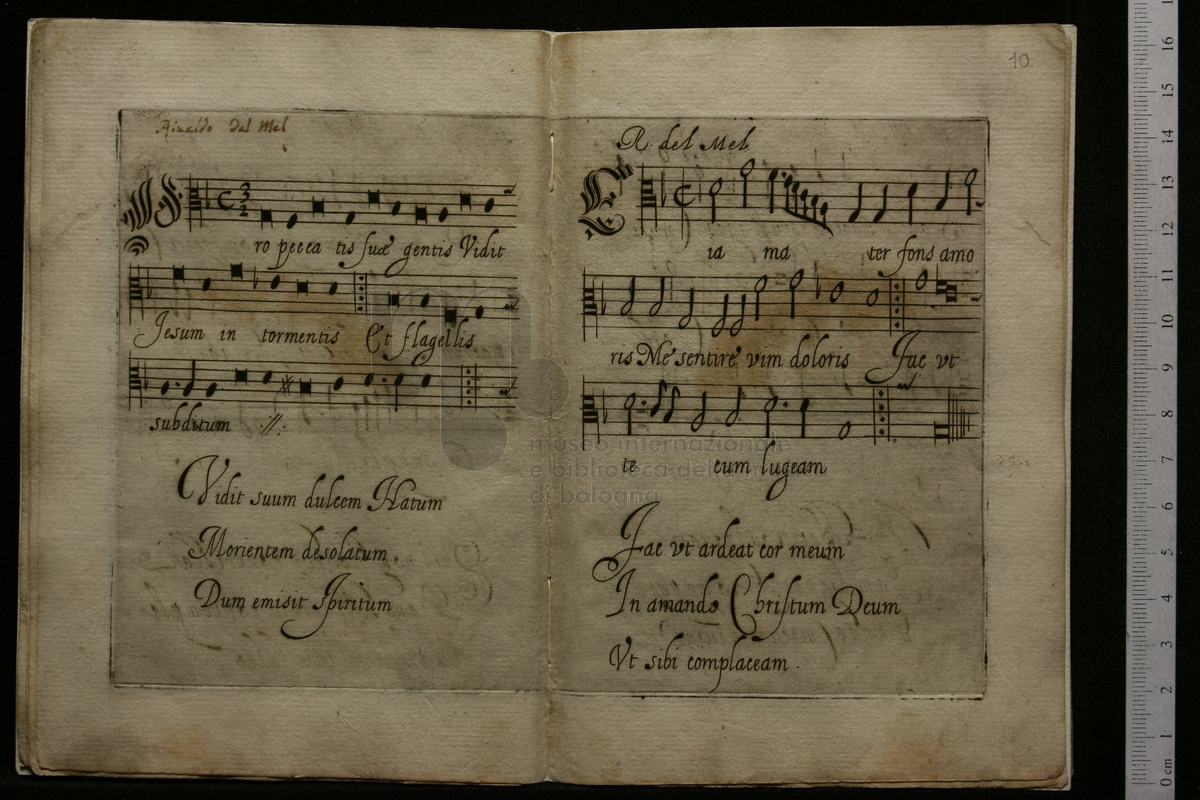 Rinaldo Dal Mel
ro pecca tis suæ gentis Vidit
Jesum in tormentis Et flagellis
subditum //.
Vidit suum dulcem Natum
Morientem desolatum.
Dum emisit spiritum
10
R. del Mel
E
ia ma ter fons amo
ris Me sentire vim doloris Fac vt
te cum lugeam
Fac vt ardeat cor meum
In amando Christum Deum
Vt sibi complaceam.
museo internazionale
e biblioteca della musica
di bologna
0 cm 1 2 3 4 5 6 7 8 9 10 11 12 13 14 15 16